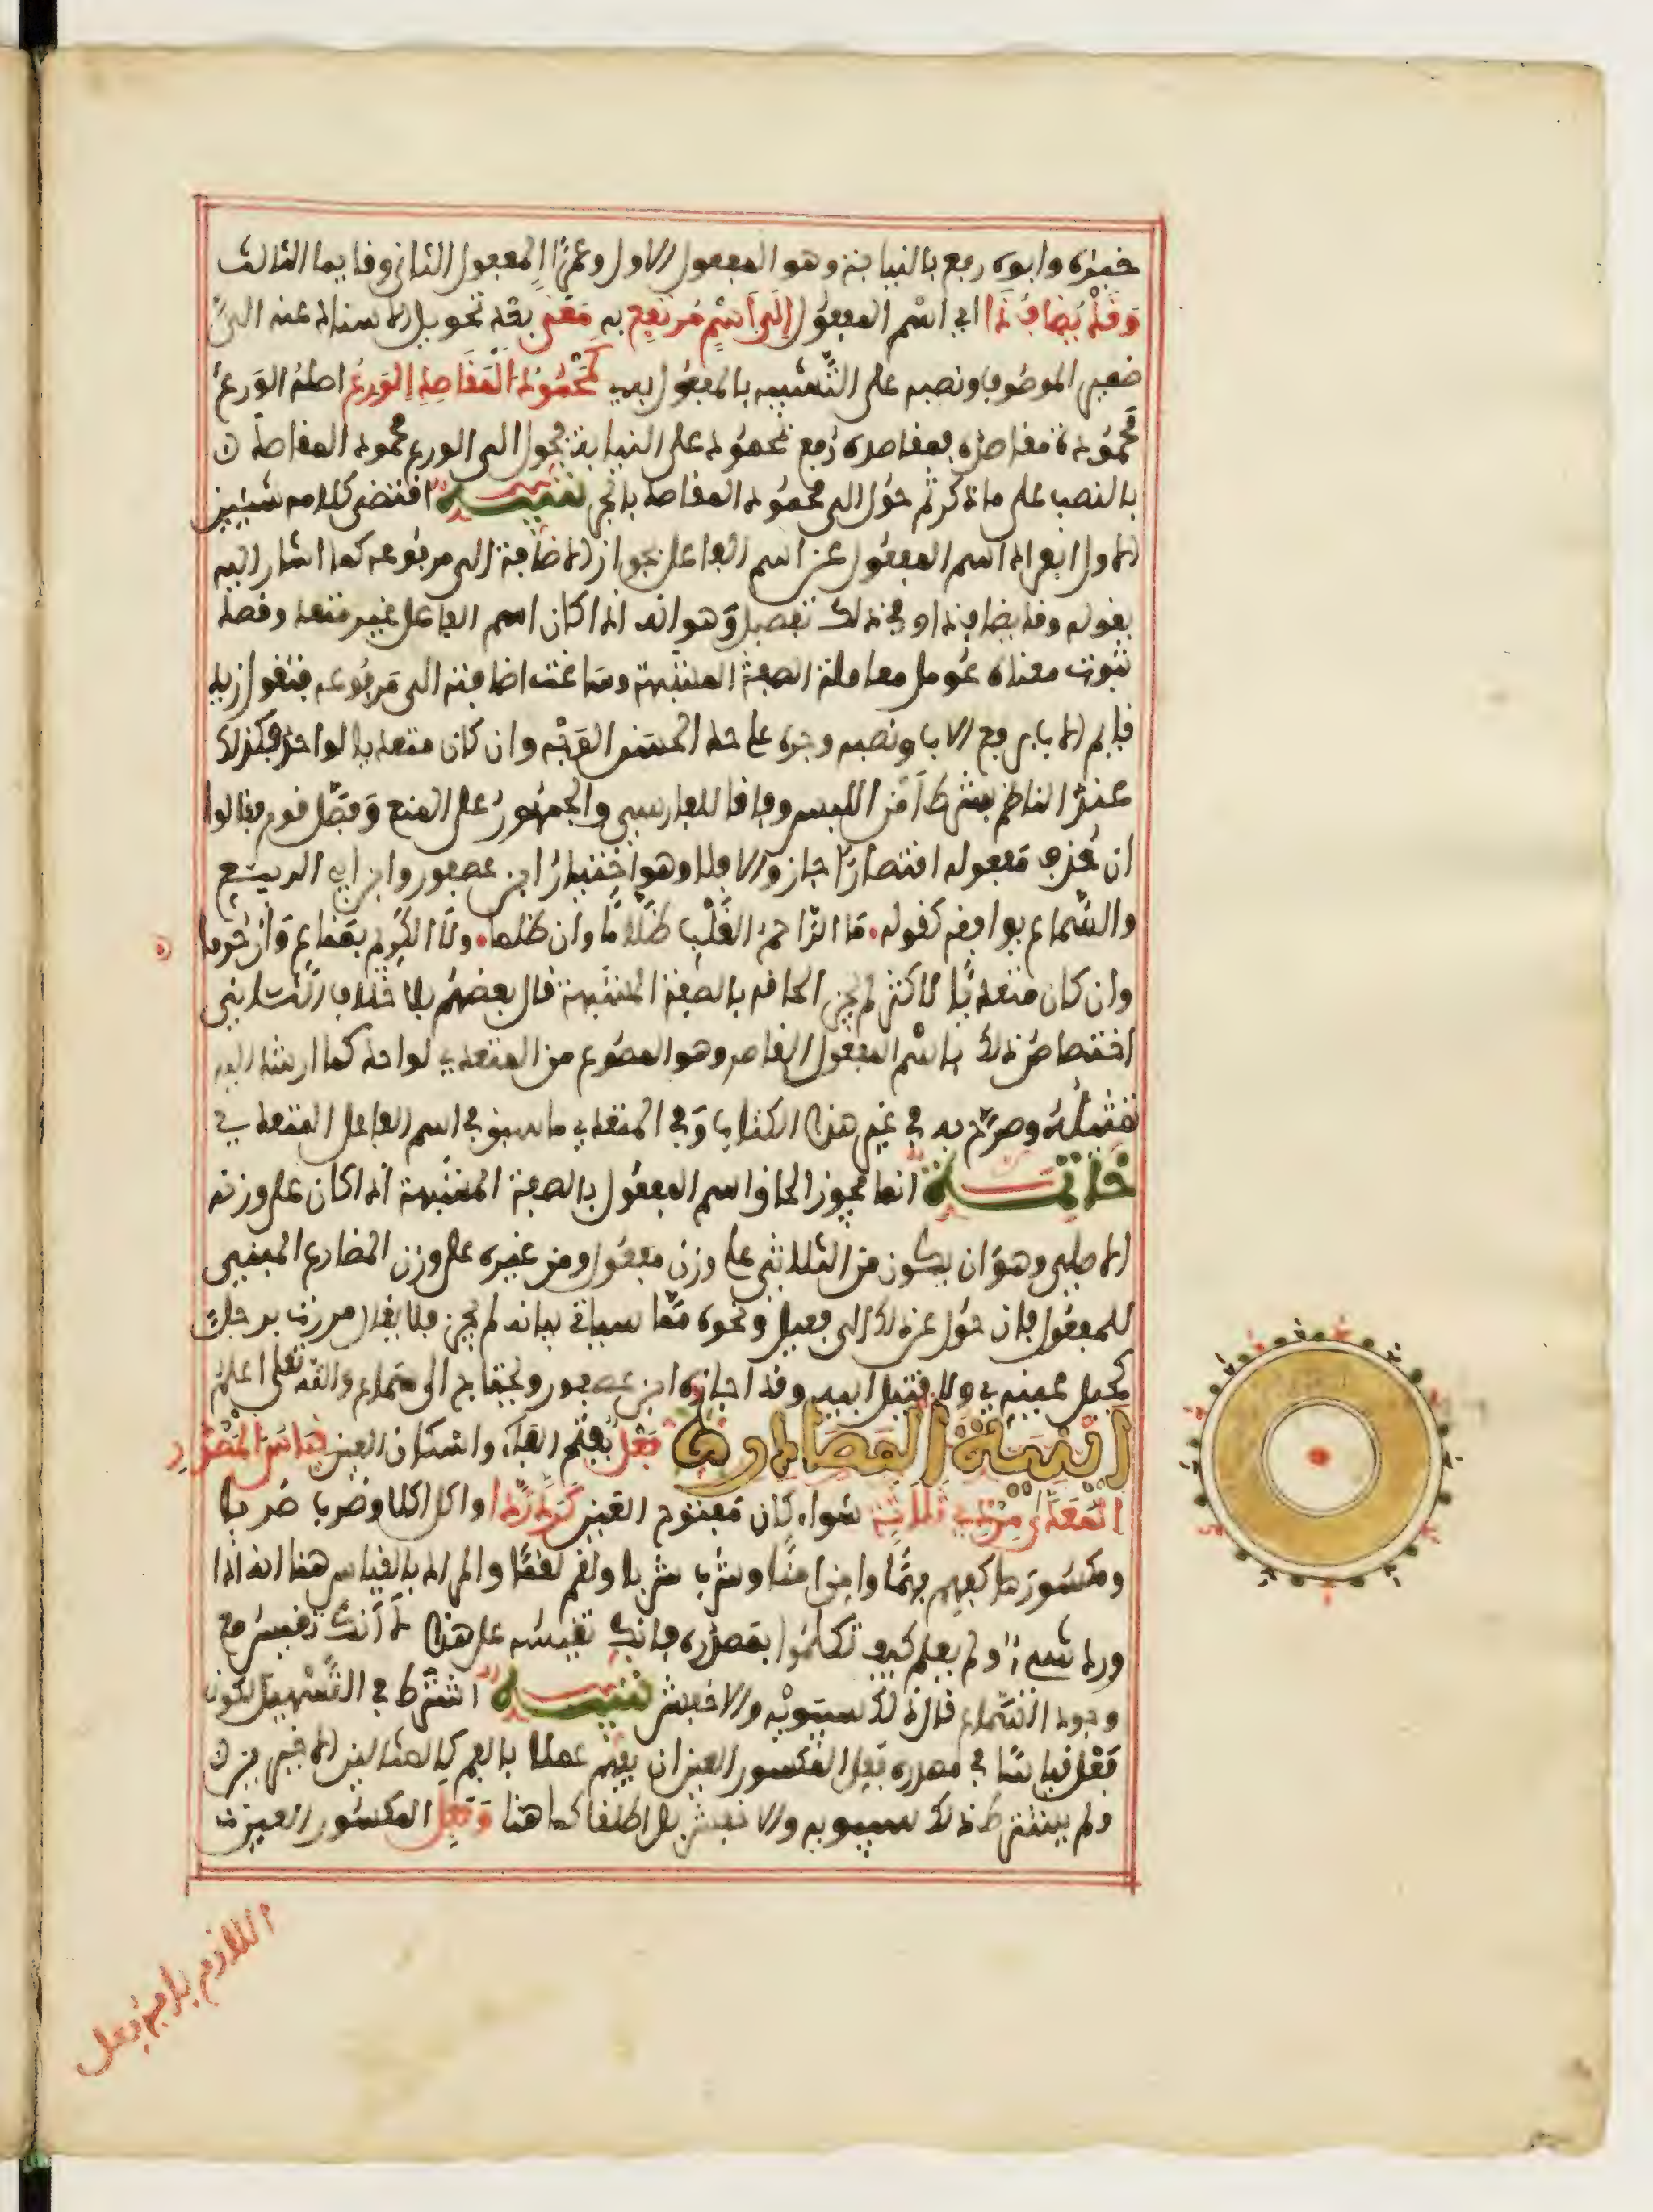 خبره وابوه رفع بالنيابة وهو المفعول الاول وعمرًا المفعول الثاني وقايما الثالث
وَقَدْ يُضَافُ ذَا اي اسْم المفعُول إِلَى اسْمٍ مُرْتَفِعٍ به مَعْنًى بعد تحويل الاسناد عنه الىٰ
ضمير الموصُوف ونصبه على التَّشبيه بالمفعُول به كَمَحْمُودُ الْمَقَاصِدِ الوَرِعُ اصلهُ الوَرِعُ
مَحْمُودَةٌ مقاصدُه فمقاصده رُفع بمحمُودة على النيابة فحول الى الورع محمود المقاصدَ
بالنصب على ما ذكر ثم حُول الى محمُود المقاصد بالجر تنبيه اقتضى كلامه شيئين
الاول انفراد اسم المفعُول عن اسم الفاعل بجواز الاضافة الى مرفوعه كما اشار اليه
بقوله وقد يضاف ذا وفي ذلك تفصيل وَهو انه اذا كان اسم الفاعل غير متعد وقصد
ثبوت معناه عُومل معاملة الصفة المشبهة وسَاغت اضافته الى مَرفُوعه فتقول زيد
قايم الاب برفع الاب ونصبه وجره على حد الحسَن الوَجْه وان كان متعديا لواحد فكذلك
عندَ الناظم بشرط أَمْن اللبس وفاقا للفارسي والجمهُورُ على المنع وَفصَّل قوم فقالوا
ان حُذِف مفعوله اقتصارًا جاز والا فلا وهو اخْتيارُ ابن عصفور وابن ابي الربيع
والسَّماع يوافقه كقوله. مَا الرَّاحمُ القَلْبِ ظَلَّامًا وان ظلما. ولَا الكَرِيم بمَنَّاع وَانْ حُرِما
وان كان متعديًا لاكثر لم يجز الحاقه بالصفة المشبهة قال بعضهُم بلا خلاف الثَّاني
اختصاصُ ذلك باسْم المفعول القاصر وهو المصُوغ من المتعدي لواحد كما ارشد اليه
تمْثيلهُ وصرَّح به في غير هذا الكتاب وَفي المتعدي ما سبق في اسم الفاعل المتعدي
خَاتمَة انما يجوز الحاق اسم المفعُول بالصفة المشبهة اذا كان على وزنه
الاصلي وهوَ ان يكون منَ الثلاثي على وزن مفعُول ومن غيره على وزن المضارع المبني
للمفعُول فان حُول عن ذلك الى فعيل ونحوه ممَّا سياتي بيانه لم يجز فلا يقال مررت برجلٍ
كحيل عينه ولا قتيل ابيه وقد اجازه ابن عصفور ويحتاج الى سماع والله تعلى اعلم
ابنية المصادر فَعْلٌ بفتح الفاء واسكان العين قِيَاسُ الْمَصْدَرِ
الْمُعَدَّى مِنْ ذِي ثَلَاثَةٍ سَواء كان مَفتوح العين كَرَدَّ رَدَّا واكل اكلا وضرب ضربا
ومكسُورها كفهِم فهْمًا وامِن امْنًا وشرب شربا ولقم لقمًا والمراد بالقياس هنا انه اذا
ورد شيءٌ ولم يعلم كيف تكلمُوا بمصدره فانك تقيسُه على هذا لَا أنّك تقيسُ مع
وجود السَّماع قال ذلك سيبَويْه والاخفش تنبيه اشترط في التَّسْهيل لكون
فَعْلٍ قياسًا في مصدر فَعِل المكسور العين ان يُفهم عملا بالفم كالمثالين الاخيرين
ولم يشترط ذلك سيبويه والاخفش بل اطلقا كما هنا وَفَعِل المكسُور العين
اللازم بابه فعل